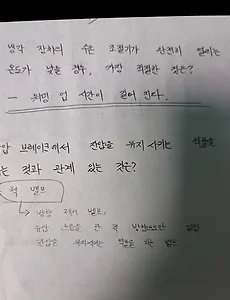 냉각 장치의 수온 조절기가 완전히 열리는
온도가 낮을 경우, 가장 적절한 것은?
– 워밍 업 시간이 길어 진다.
압 브레이크에서 잔압을 유지시키는 역할을
는 것과 관계 있는 것은?
첵 밸브
→ 방향 제어 밸브,
흐름을 한 쪽
잔압을 역할을 하는 밸브